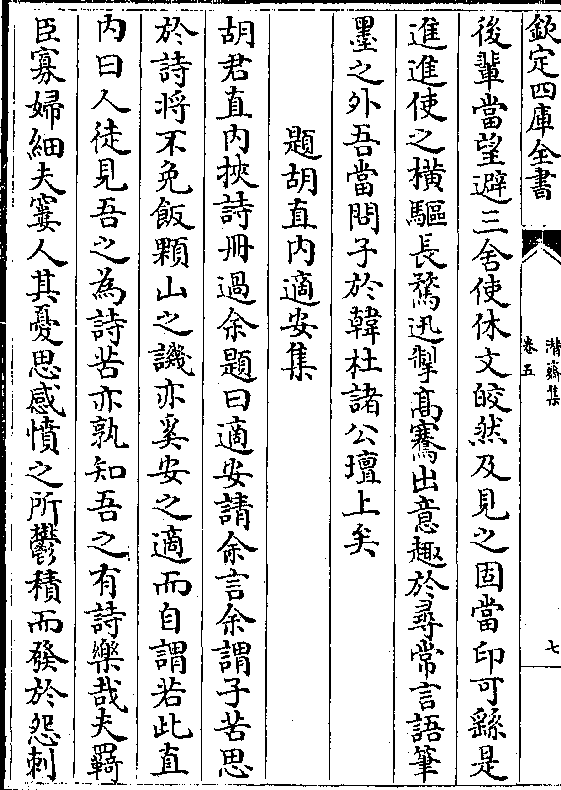 欽定四庫全書
潛齋集
卷五
七
後輩當望避三舍使休文皎然及見之固當印可繇是
進進使之橫驅長騖迅掣髙騫出意趣於尋常言語筆
墨之外吾當問子於韓杜諸公壇上矣
題胡直内適安集
胡君直内挾詩冊過余題曰適安請余言余謂子苦思
於詩將不免飯顆山之譏亦奚安之適而自謂若此直
内曰人徒見吾之為詩苦亦孰知吾之有詩樂哉夫羇
臣寡婦細夫窶人其憂思感憤之所鬱積而發於怨刺